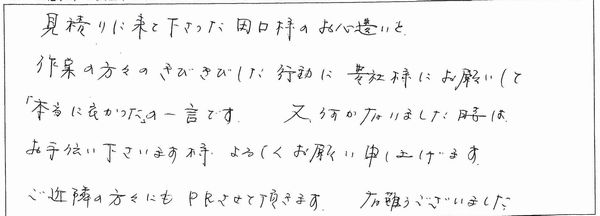 見積りに来て下さった田口様のお心遣いと
作業の方々のきびきびした行動に貴社様にお願いして
「本当に良かった」の一言です。 又、何かありました時は、
お手伝い下さいます様 よろしくお願い申し上げます。
ご近隣の方々にもPRさせて頂きます。 有難うございました